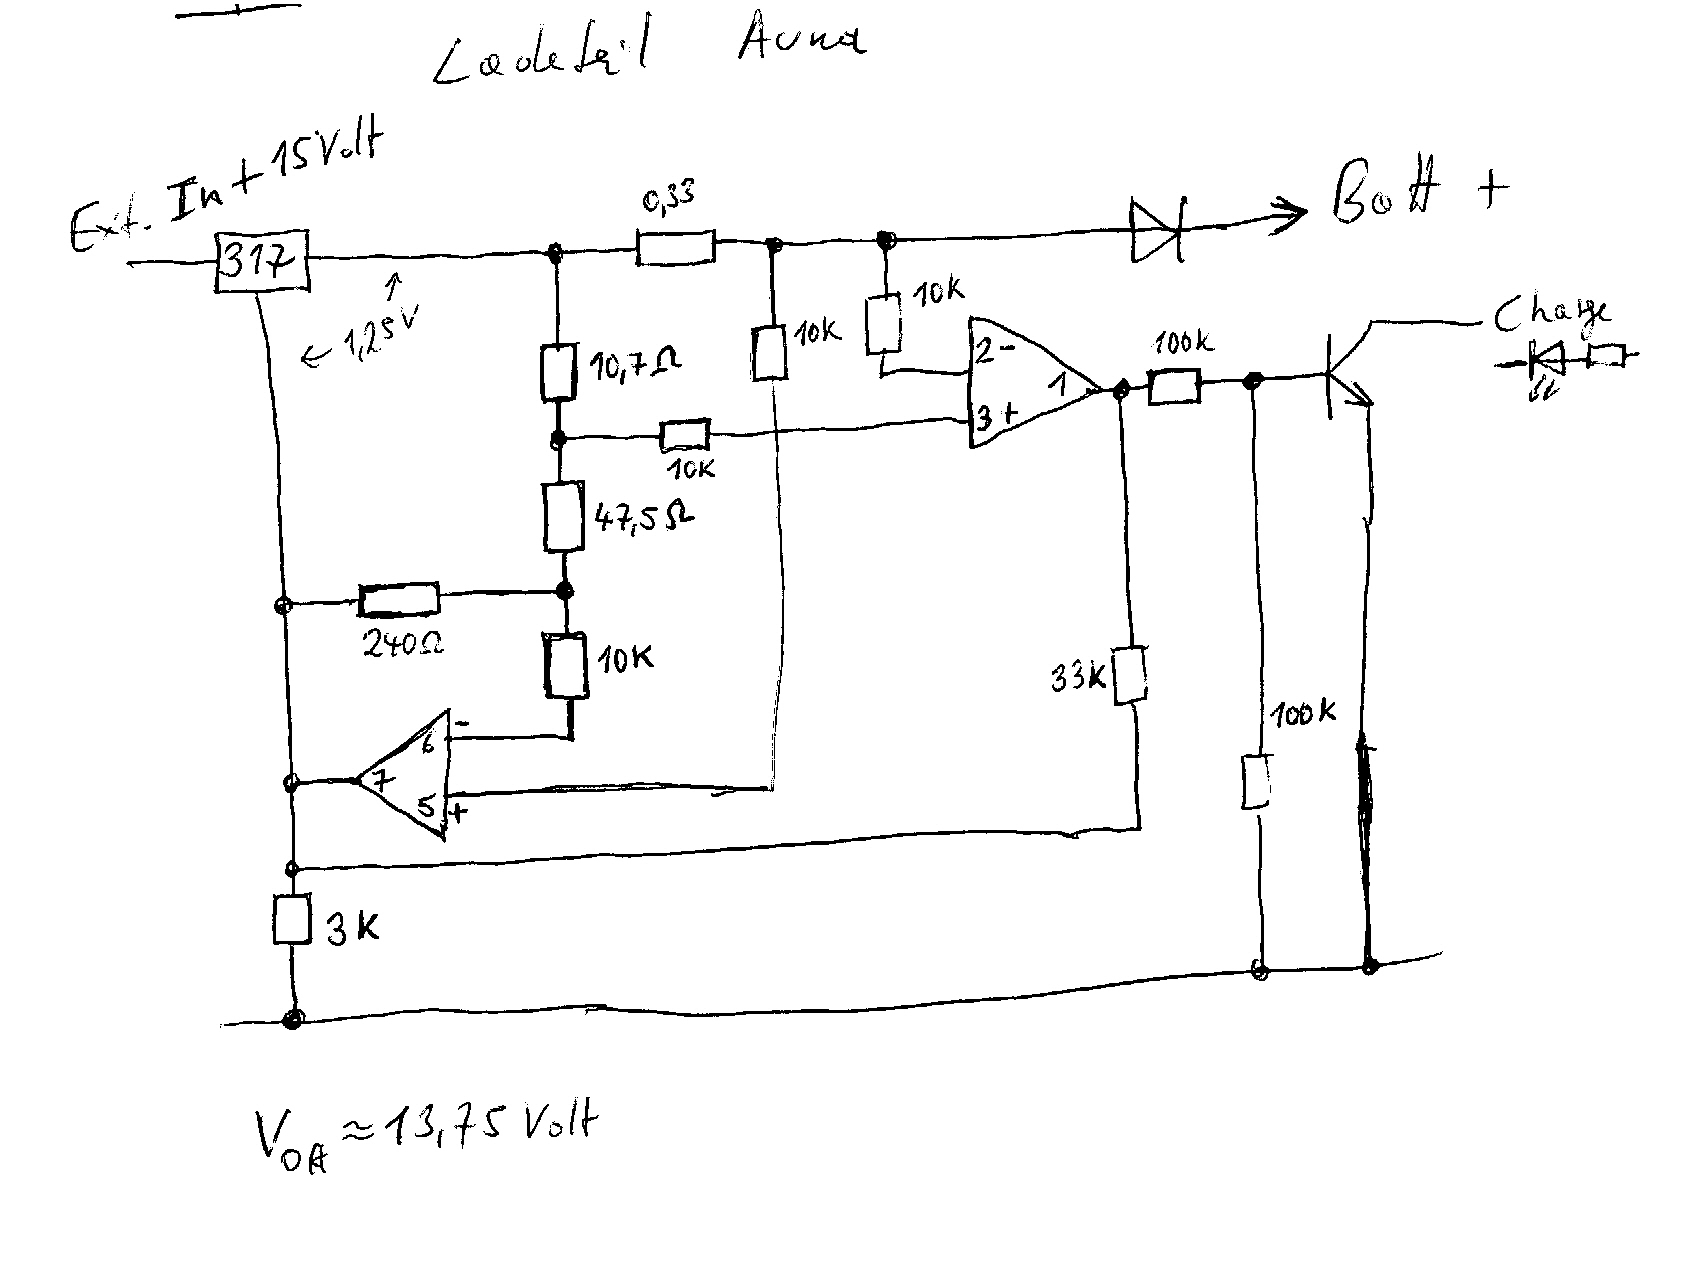 Ladeteil Auna
Ext. In + 15 Volt
Batt +
0,33
317
1,25V
10,7Ω
10K
10K
100k
Charge
2 -
1
3 +
10K
47,5Ω
240Ω
10K
33K
100K
6 -
7
5 +
3K
VOA ≈ 13,75 Volt